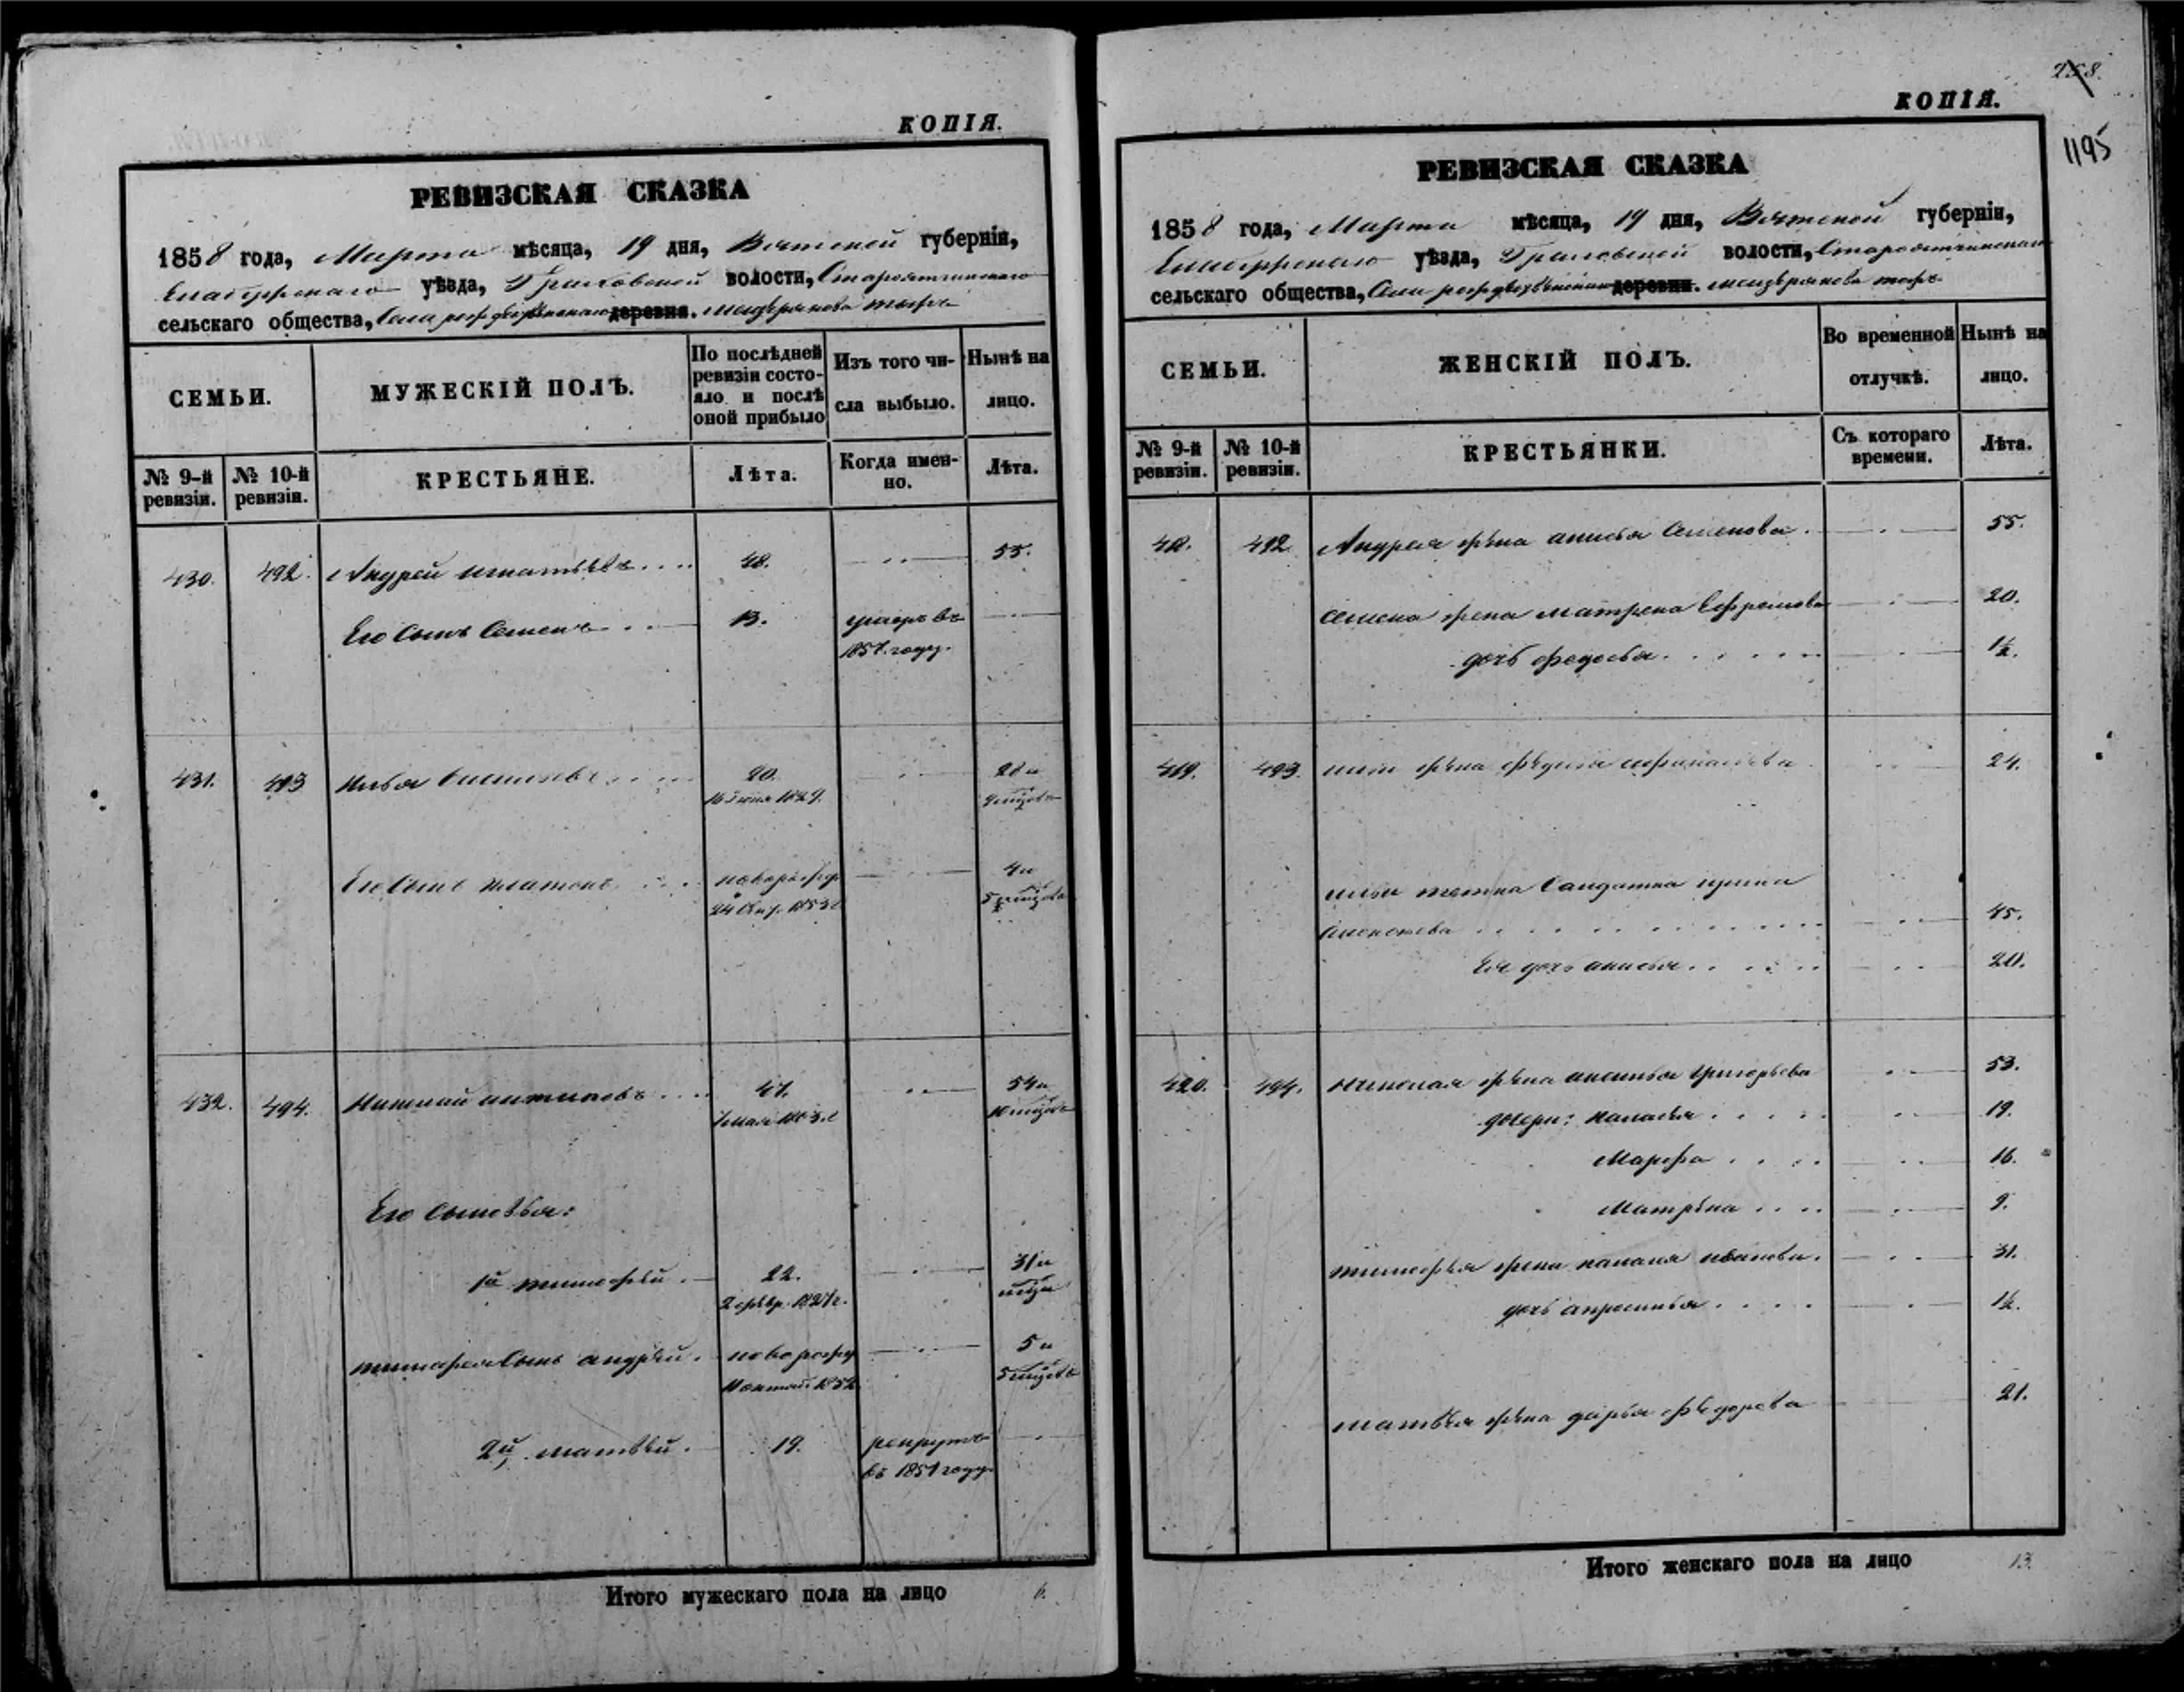 КОПІЯ.
РЕВИЗСКАЯ СКАЗКА
1858 года, Марта мѣсяца, 19 дня, Вятской губерніи,
Елабужскаго уѣзда, Граховской волости, Староятчинскаго
сельскаго общества, Села рождественскаго деревня.
СЕМЬИ. МУЖЕСКІЙ ПОЛЪ. По послѣдней ревизіи состояло и послѣ оной прибыло Изъ того числа выбыло. Нынѣ на лицо.
№ 9-й ревизіи. № 10-й ревизіи. КРЕСТЬЯНЕ. Лѣта. Когда именно. Лѣта.
430. 492. Андрей игнатьевъ 48. 55.
Его Сынъ Семенъ 13. умеръ въ
1857. году.
431. 493 Илья 20. 28 и
1829. 9 мцовъ
Его Сынъ платонъ новорожд 4 и
5 мцовъ
432. 494. Николай антиповъ 47. 54 и
10 мцовъ
Его Сыновья:
1й тимофѣй. 22. 31 и
мцъ
тимофея Сынъ андрѣй. новорожд 5 и
5 мцовъ
2й матвѣй. 19. рекрутъ
въ 1851 году
Итого мужескаго пола на лицо 6.
258.
1195
КОПІЯ.
РЕВИЗСКАЯ СКАЗКА
1858 года, Марта мѣсяца, 19 дня, Вятской губерніи,
Елабужскаго уѣзда, Граховской волости, Староятчинскаго
сельскаго общества, Села рождественскаго деревни.
СЕМЬИ. ЖЕНСКІЙ ПОЛЪ. Во временной отлучкѣ. Нынѣ на лицо.
№ 9-й ревизіи. № 10-й ревизіи. КРЕСТЬЯНКИ. Съ котораго времени. Лѣта.
418. 492 Андрея жена анисья Семенова. 55.
Семена жена матрена Ефремова 20.
дочь федосья. 1½.
419. 493. ильи жена 24.
ильи тетка Салдатка ирина
45.
Ея дочь анисья 20.
420. 494. николая жена аксинья григорьева 53.
дочери: 19.
Марфа 16.
Матрѣна 9.
тимофея жена иванова. 31.
дочь апросинья 1½.
матвѣя жена дарья фѣдорова 21.
Итого женскаго пола на лицо 13